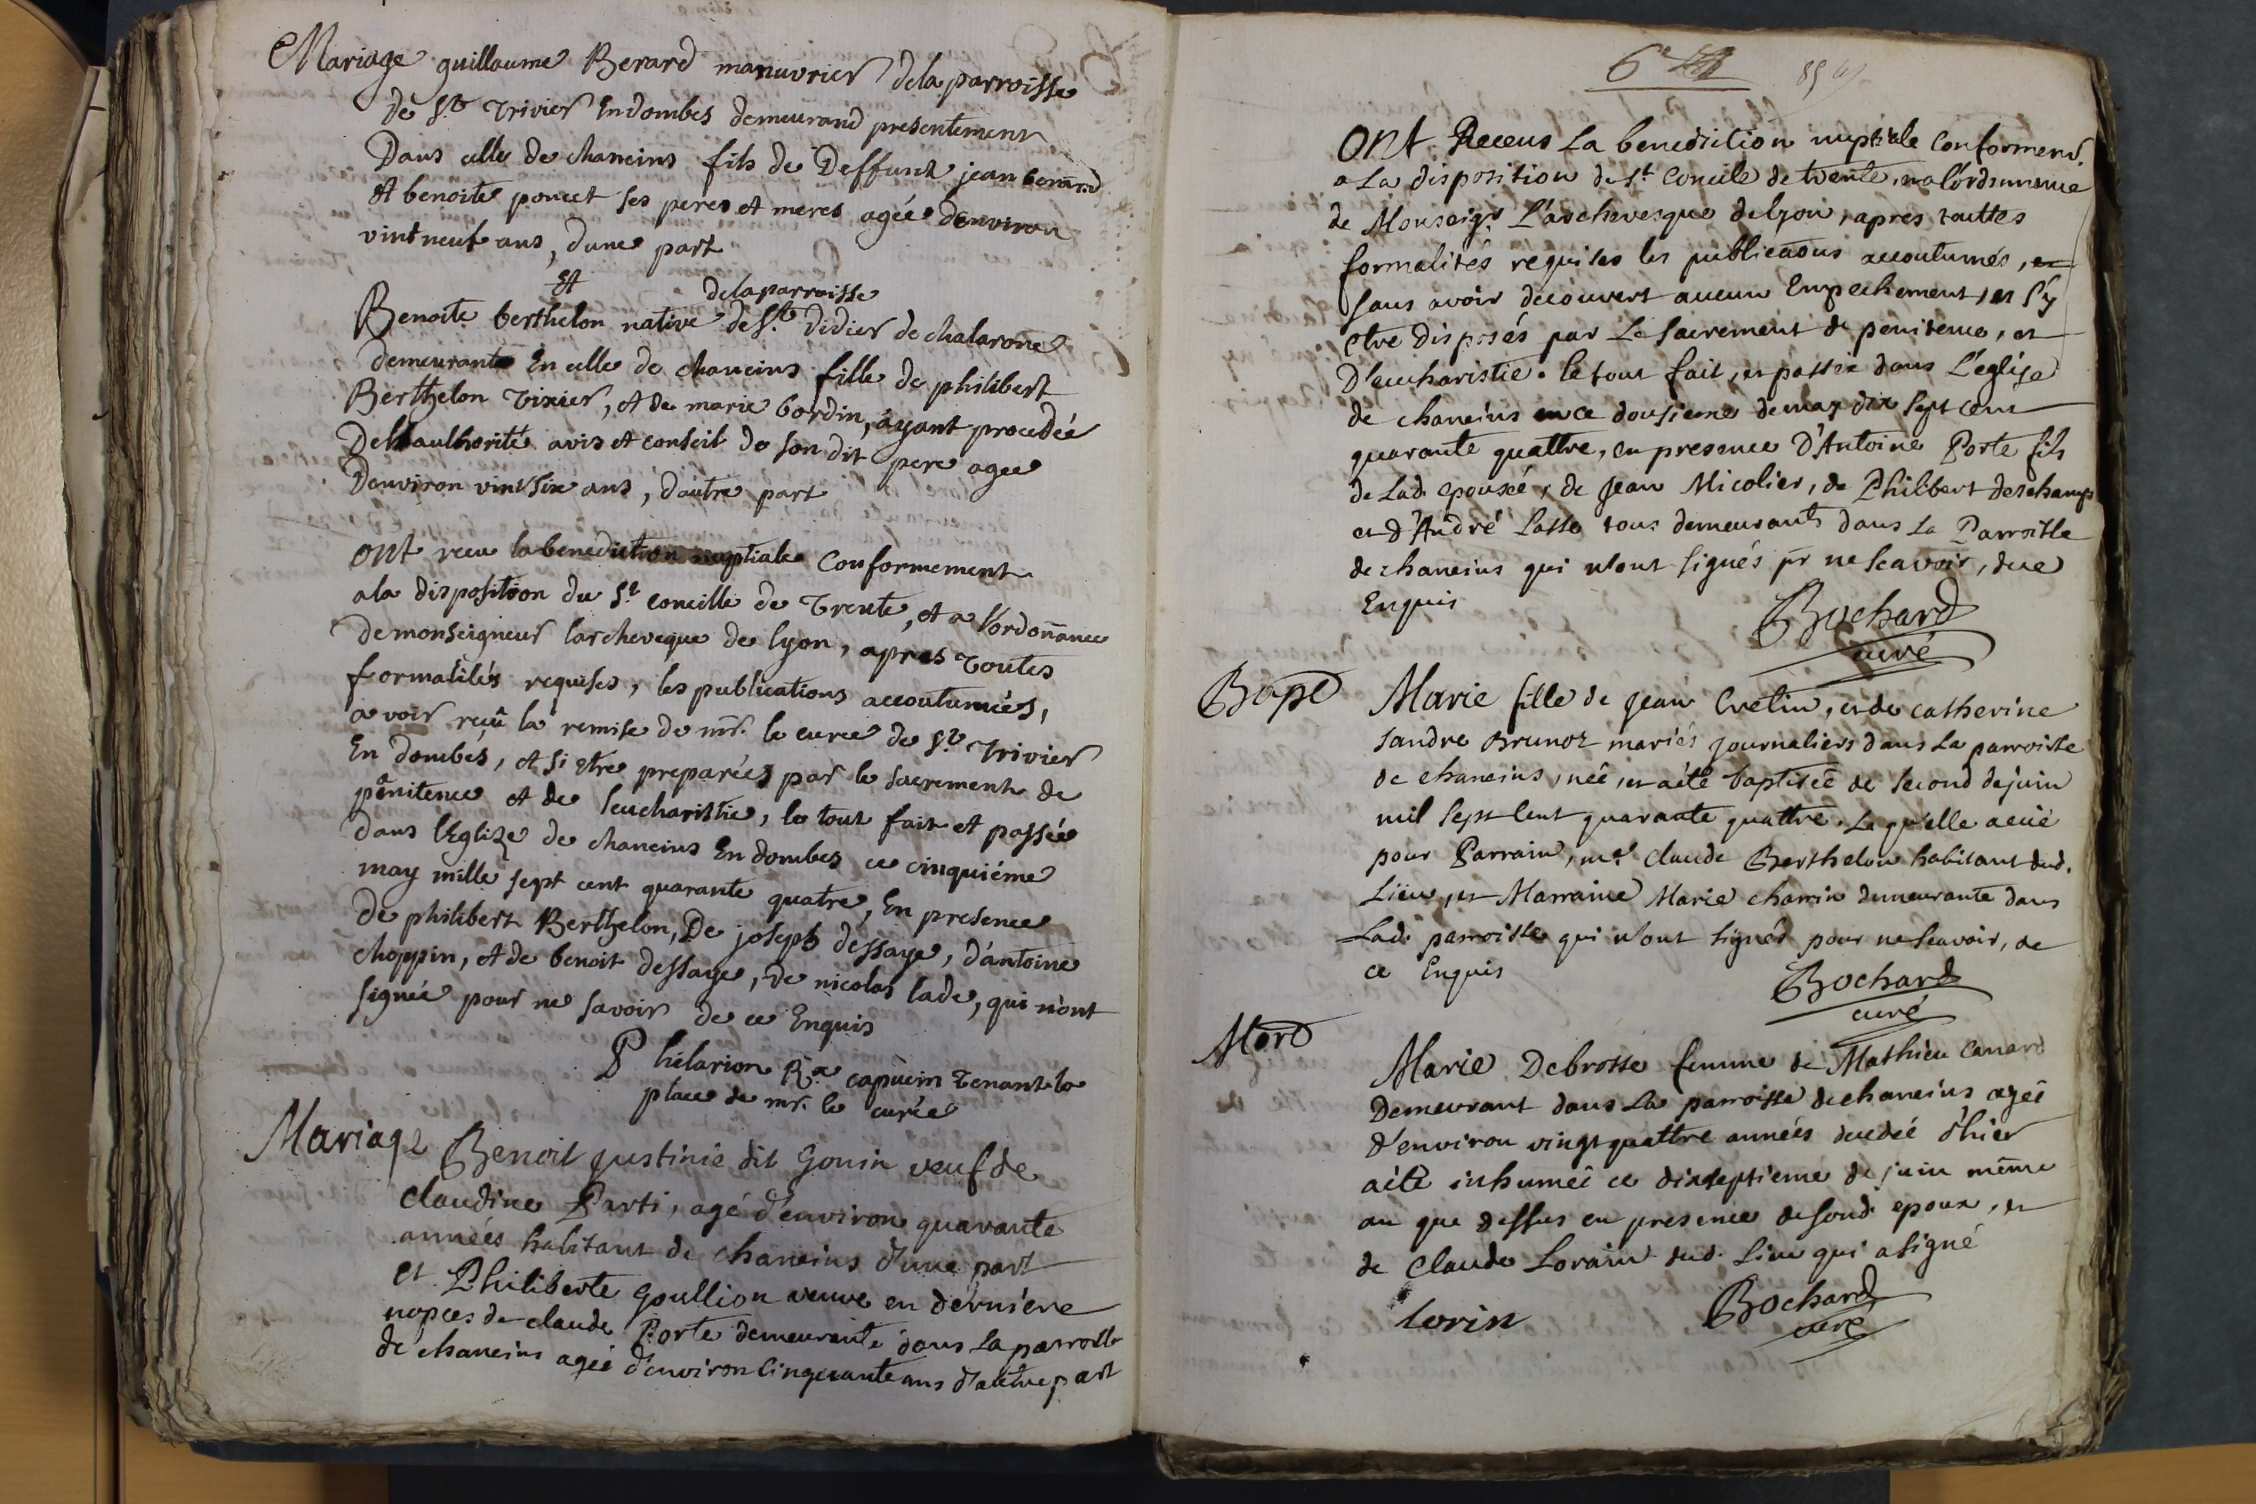 Mariage guillaume Berard manuvrier dela parroisse
de St. trivier En dombes demeurand presentement
Dans celle de chaneins fils de Deffunt jean berard
et benoite poncet ses peres et meres agée denviron
vint neuf ans, dune part
et
dela parroisse
Benoite berthelon native de St. didier de chalarone
demeurante En celle de chaneins fille de philibert
Berthelon tixier, et de marie bordin, ayant procedée
De l'authorité avis et conseil de son dit pere agee
Denviron vint six ans, d'autre part
ont receu la benediction nuptiale Conformement
a la disposition du St. concille de Trente, et a l'ordonnance
de monseigneur larcheveque de lyon, apres toutes
formalités requises, les publications accoutumées,
avoir reçû la remise de mr. le curée de St. trivier
En dombes, et si etre preparées par le sacrement de
pénitence et de leucharistie, le tout fait et passée
dans l'Eglize de chaneins En dombes ce cinquiéme
may mille sept cent quarante quatre, En presence
de philibert Berthelon, De joseph dessaye, d'antoine
choppin, et de benoit dessaye, de nicolas lade, qui n'ont
signée pour ne savoir de ce Enquis
P hilarion Ra. capucin tenant la
place de mr. le curée
Mariage Benoit justinie dit Gonin veuf de
claudine Parti, agé d'environ quarante
années habitant de chaneins d'une part
et Philiberte Goullion veuve en dérniere
nopces de claude Porte demeurante dans la parroisse
de chaneins agée d'environ Cinquante ans d'autre part
6e
85
ont Receus La benediction nuptiale Conformemt.
a La disposition de St. Concile de trente, et a l'ordonnance
de Monseigr. L'archevesque de lyon, apres touttes
formalités requises les publicaons accoutumés, et
sans avoir découvert aucun Empechement, et s'y
etre disposés par Le sacrement de penitence, et
D'eucharistie. le tout fait, et passée dans L'église
de chaneins ce dousieme de may dix sept cent
quarante quattre, en presence D'Antoine Porte fils
de Lad. epousée, de Jean Micolier, de Philbert deschamps
et D'André Lasse tous demeurants dans La Parroisse
de chaneins qui n'ont signés pr ne scavoir, de ce
Enquis
Bochard
curé
Bapt Marie fille de Jean Cretin, et de catherine
sandre Brunot mariés journaliers dans La parroisse
de chaneins, née, et a été baptisée de second de juin
mil sept cent quarante quattre. La qu'elle a eüe
pour Parrain, me. Claude Berthelon habitant dud.
Lieu, et Marraine Marie charrin demeurante dans
Lad. parroisse qui n'ont signés pour ne scavoir, de
ce Enquis
Bochard
curé
Mort
Marie Debrosse femme de Mathieu Canard
Demeurant dans La parroisse de chaneins agée
d'environ vingt quattre années decedée d'hier
a été inhumée ce dixseptieme de juin même
an que dessus en presence de sond. epoux, et
de Claude Lorain dud. Lieu qui a signé
lorin
Bochard
curé